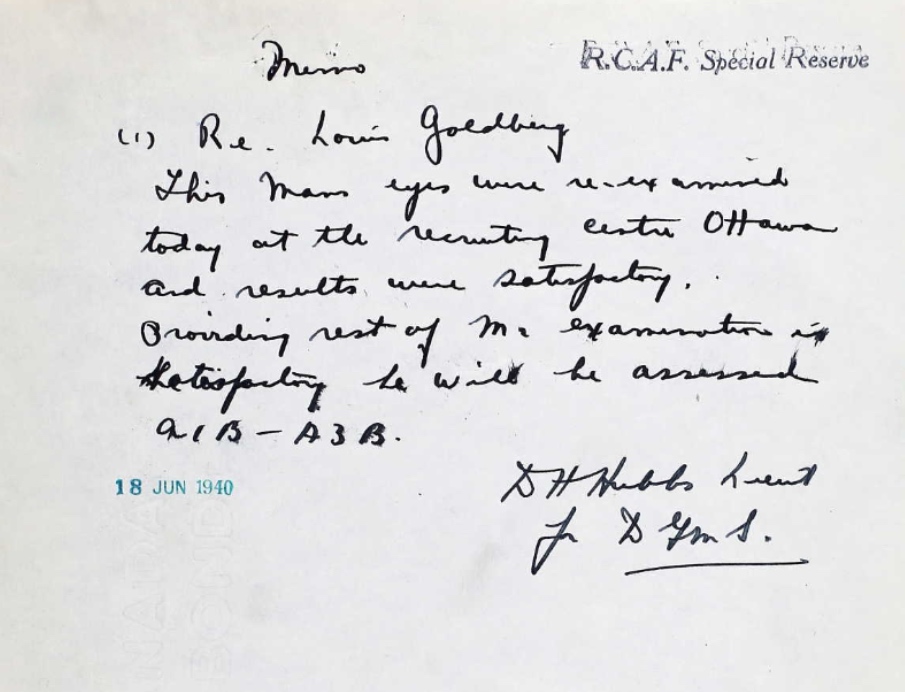 Memo
R.C.A.F. Special Reserve
(1) Re. Louis Goldberg
This Mans eyes were re-examined
today at the recruiting centre Ottawa
and results were satisfactory.
Providing rest of examination is
satisfactory he will be assessed
A1B - A3B.
18 JUN 1940
D H Hubbs Lieut
for D G M S.